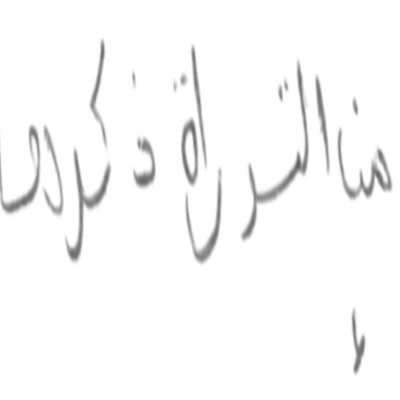 من التوراة ذكرها